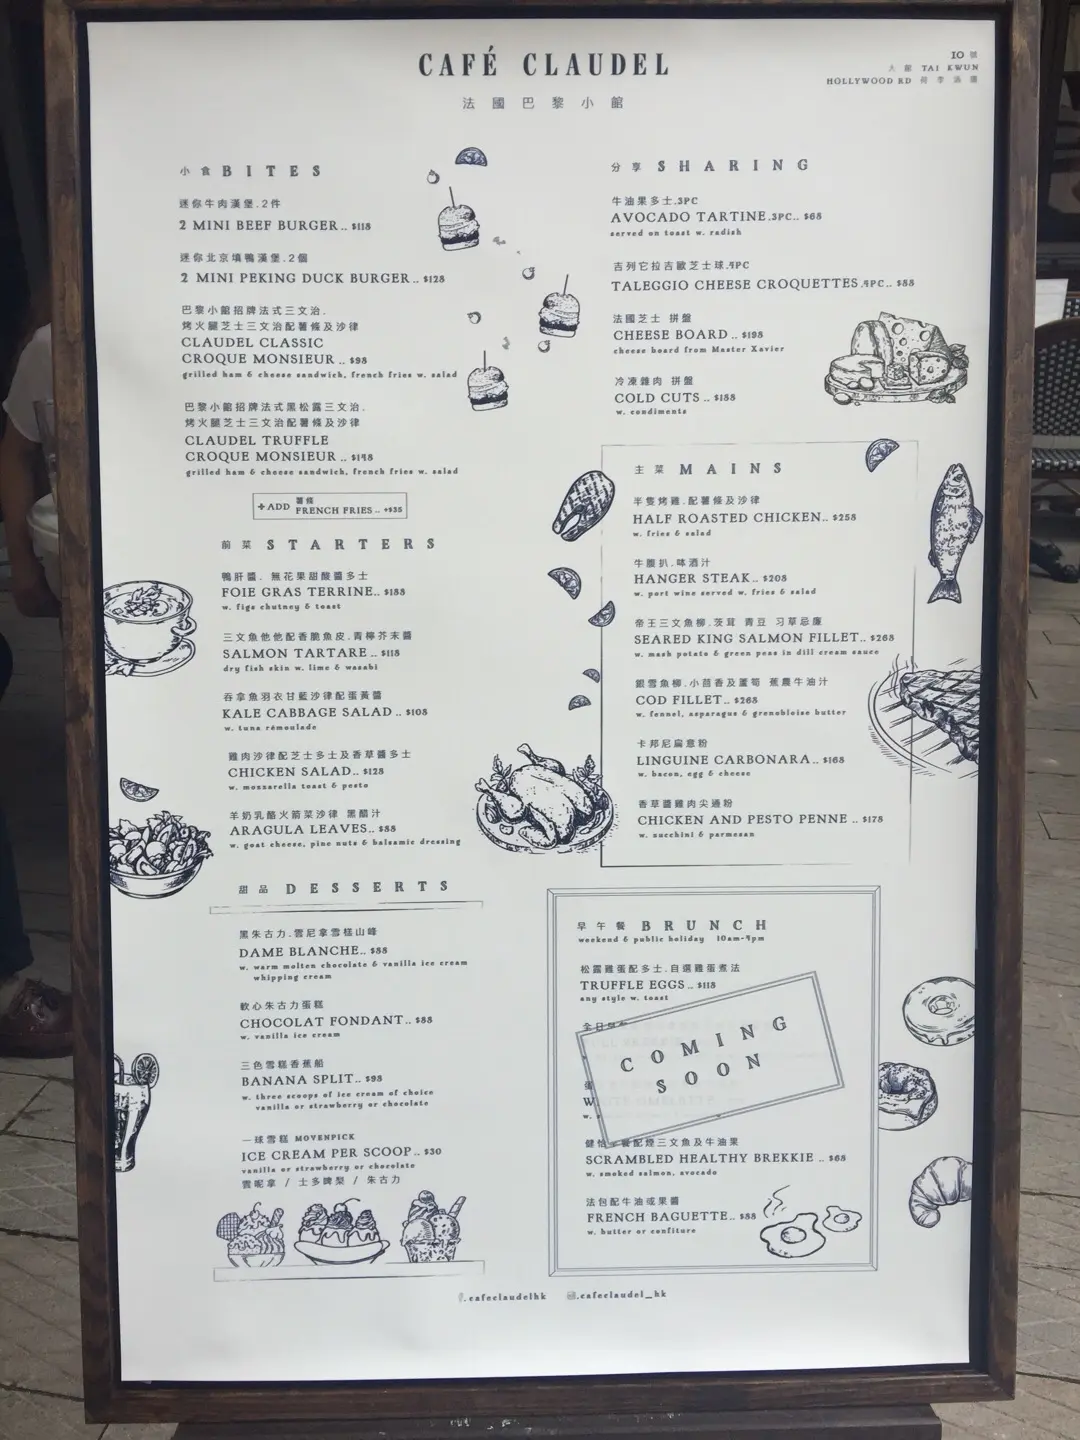 CAFÉ CLAUDEL
法國巴黎小館
10 號
大館 TAI KWUN
HOLLYWOOD RD 荷李活道
小食 BITES
迷你牛肉漢堡.2件
2 MINI BEEF BURGER.. $118
迷你北京填鴨漢堡.2個
2 MINI PEKING DUCK BURGER.. $128
巴黎小館招牌法式三文治.
烤火腿芝士三文治配薯條及沙律
CLAUDEL CLASSIC
CROQUE MONSIEUR .. $98
grilled ham & cheese sandwich, french fries w. salad
巴黎小館招牌法式黑松露三文治.
烤火腿芝士三文治配薯條及沙律
CLAUDEL TRUFFLE
CROQUE MONSIEUR .. $148
grilled ham & cheese sandwich, french fries w. salad
+ADD 薯條
FRENCH FRIES .. +$35
前菜 STARTERS
鴨肝醬. 無花果甜酸醬多士
FOIE GRAS TERRINE.. $188
w. figs chutney & toast
三文魚他他配香脆魚皮.青檸芥末醬
SALMON TARTARE .. $118
dry fish skin w. lime & wasabi
吞拿魚羽衣甘藍沙律配蛋黃醬
KALE CABBAGE SALAD .. $108
w. tuna rémoulade
雞肉沙律配芝士多士及香草醬多士
CHICKEN SALAD.. $128
w. mozzarella toast & pesto
羊奶乳酪火箭菜沙律 黑醋汁
ARAGULA LEAVES.. $88
w. goat cheese, pine nuts & balsamic dressing
甜品 DESSERTS
黑朱古力.雲尼拿雪糕山峰
DAME BLANCHE.. $88
w. warm molten chocolate & vanilla ice cream
whipping cream
軟心朱古力蛋糕
CHOCOLAT FONDANT.. $88
w. vanilla ice cream
三色雪糕香蕉船
BANANA SPLIT.. $98
w. three scoops of ice cream of choice
vanilla or strawberry or chocolate
一球雪糕 MOVENPICK
ICE CREAM PER SCOOP.. $30
vanilla or strawberry or chocolate
雲呢拿 / 士多啤梨 / 朱古力
分享 SHARING
牛油果多士.3PC
AVOCADO TARTINE.3PC.. $68
served on toast w. radish
吉列它拉吉歐芝士球.4PC
TALEGGIO CHEESE CROQUETTES.4PC.. $88
法國芝士 拼盤
CHEESE BOARD.. $198
cheese board from Master Xavier
冷凍雜肉 拼盤
COLD CUTS .. $188
w. condiments
主菜 MAINS
半隻烤雞.配薯條及沙律
HALF ROASTED CHICKEN.. $258
w. fries & salad
牛腰扒.砵酒汁
HANGER STEAK.. $208
w. port wine served w. fries & salad
帝王三文魚柳.茨茸 青豆 刁草忌廉
SEARED KING SALMON FILLET.. $268
w. mash potato & green peas in dill cream sauce
銀雪魚柳.小茴香及蘆筍 蕉農牛油汁
COD FILLET.. $268
w. fennel, asparagus & grenobloise butter
卡邦尼扁意粉
LINGUINE CARBONARA.. $168
w. bacon, egg & cheese
香草醬雞肉尖通粉
CHICKEN AND PESTO PENNE .. $178
w. zucchini & parmesan
早午餐 BRUNCH
weekend & public holiday 10am-4pm
松露雞蛋配多士.自選雞蛋煮法
TRUFFLE EGGS.. $118
any style w. toast
全日
COMING
SOON
W
w.
健怡 餐配煙三文魚及牛油果
SCRAMBLED HEALTHY BREKKIE .. $68
w. smoked salmon, avocado
法包配牛油或果醬
FRENCH BAGUETTE.. $88
w. butter or confiture
.cafeclaudelhk .cafeclaudel_hk